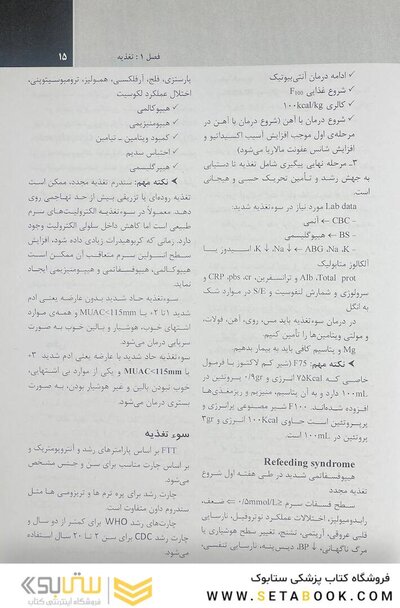 فصل ۱ : تغذیه
۱۵
✓ ادامه درمان آنتی‌بیوتیک
✓ شروع غذایی F100
✓ کالری ۱۰۰kcal/kg
✓ شروع درمان با آهن (شروع درمان با آهن در
مرحله‌ی اول موجب افزایش آسیب اکسیداتیو و
افزایش شانس عفونت مالاریا می‌شود)
۳- مرحله نهایی پیگیری شامل تغذیه تا دستیابی
به جهش رشد و تأمین تحریک حسی و هیجانی
است.
Lab data مورد نیاز در سوءتغذیه شدید:
CBC ← آنمی
BS ← هیپوگلیسمی
ABG ،Na ،K ← Na↓، K↓، اسیدوز یا
آلکالوز متابولیک
Alb ،Total prot و ترانسفرین، CRP ،pbs ،cr و
سرولوژی و شمارش لنفوسیت و S/E در موارد شک
به انگل
در درمان سوءتغذیه باید مس، روی، آهن، فولات،
و مولتی ویتامین‌ها را تأمین کنیم.
Mg و پتاسیم کافی باید به بیمار بدهیم.
نکته مهم: F75 (شیر کم لاکتوز با فرمول
خاصی که 75Kcal انرژی و ۰/۹gr پروتئین در
۱۰۰mL دارد و به آن پتاسیم، منیزیم و ریزمغذی‌ها
افزوده شده‌اند. F۱۰۰ شیر مصنوعی پرانرژی و
پرپروتئین است حاوی ۱۰۰Kcal انرژی و ۳gr
پروتئین در ۱۰۰mL است.
Refeeding syndrome
هیپوفسفاتمی شدید در طی هفته اول شروع
تغذیه مجدد
سطح فسفات سرم ≤۰/۵mmol/L ⇐ ضعف،
رابدومیولیز، اختلالات عملکرد نوتروفیل، نارسایی
قلبی عروقی، آریتمی، تشنج، تغییر سطح هوشیاری یا
مرگ ناگهانی، BP↓، دیس‌پنه، نارسایی تنفسی،
پارستزی، فلج، آرفلکسی، همولیز، ترومبوسیتوپنی،
اختلال عملکرد لکوسیت
✓ هیپوکالمی
✓ هیپومنیزیمی
✓ کمبود ویتامین - تیامین
✓ احتباس سدیم
✓ هیپرگلیسمی
نکته مهم: سندرم تغذیه مجدد، ممکن است
تغذیه روده‌ای یا تزریقی بیش از حد تهاجمی روی
دهد. معمولاً در سوءتغذیه الکترولیت‌های سرم
طبیعی است اما کاهش داخل سلولی الکترولیت وجود
دارد. زمانی که کربوهیدرات زیادی داده شود، افزایش
سطح انسولین سرم متعاقب آن ممکن است
هیپوکالمی، هیپوفسفاتمی و هیپومنیزیمی ایجاد
نماید.
سوءتغذیه حاد شدید بدون عارضه یعنی ادم
شدید ۱ تا ۲+ یا MUAC<115mm و همه‌ی موارد
اشتهای خوب، هوشیار و بالین خوب به صورت
سرپایی درمان می‌شود.
سوءتغذیه حاد شدید با عارضه یعنی ادم شدید ۳+
یا MUAC<115mm و یکی از موارد بی اشتهایی،
خوب نبودن بالین و غیر هوشیار بودن، به صورت
بستری درمان می‌شود.
سوء تغذیه
FTT بر اساس پارامترهای رشد و آنتروپومتریک و
بر اساس چارت مناسب برای سن و جنس مشخص
می‌شود.
چارت رشد برای پره ترم ها و تریزومی ها مثل
سندروم داون متفاوت است.
چارت‌های رشد WHO برای کمتر از دو سال و
چارت رشد CDC برای سن ۲ تا ۲۰ سال استفاده
می‌شود.
فروشگاه کتاب پزشکی ستابوک
WWW.SETABOOK.COM
ستابوک
فروشگاه اینترنتی کتاب